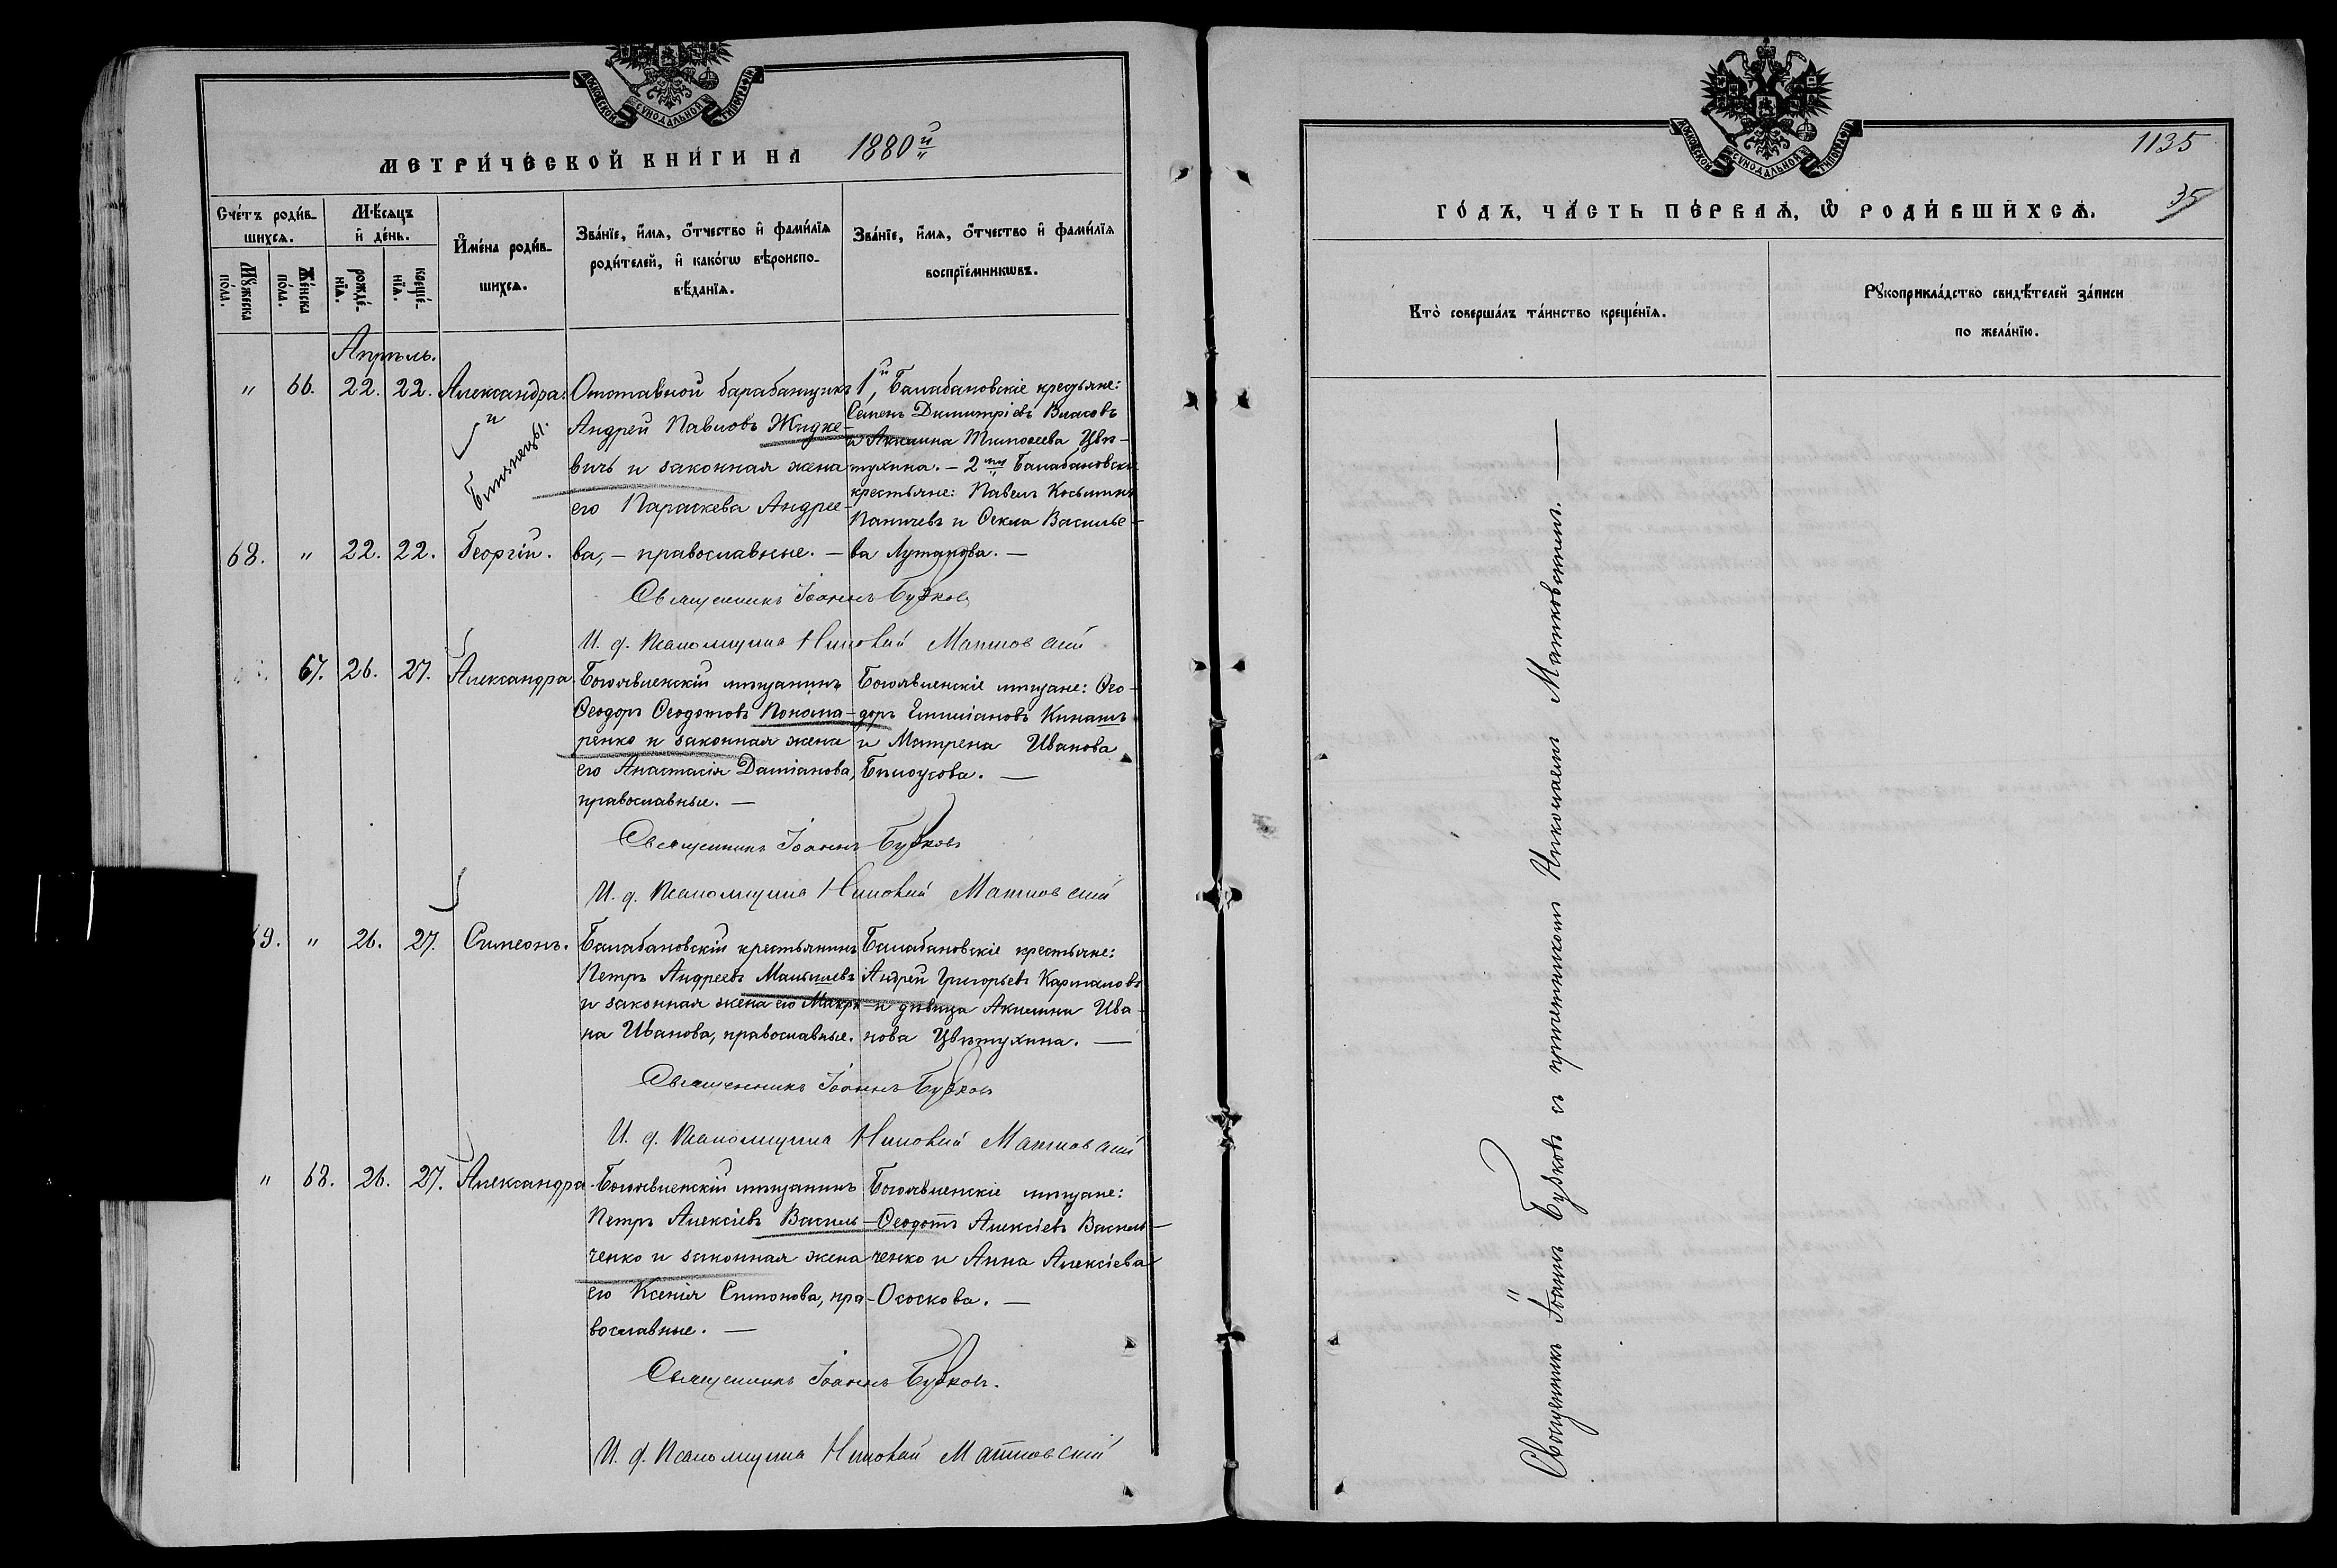 МОСКОВСКОЙ СУНОДАЛЬНОЙ ТИПОГРАФІИ
МЕТРИ́ЧЕСКОЙ КНИ́ГИ НА 1880й
Сче́тъ роди́в-
шихсѧ.
Мꙋ́жеска
по́ла.
Же́нска
по́ла.
Мѣ́сѧцъ
и҆ де́нь.
рожде́-
нїѧ.
креще́-
нїѧ.
И҆мена̀ роди́в-
шихсѧ.
Зва́нїе, и҆́мѧ, ѻ҆́тчество и҆ фами́лїѧ
роди́телей, и҆ како́гѡ вѣроиспо-
вѣ́данїѧ.
Зва́нїе, и҆́мѧ, ѻ҆́тчество и҆ фами́лїѧ
воспрїе́мникѡвъ.
Апрѣль.
" 66. 22. 22. Александра.
и
Близнецы.
68. " 22. 22. Георгій.
Отставной барабанщикъ
Андрей Павловъ Жидке-
вичъ и законная жена
его Параскева Андрее-
ва, – православные. –
1й, Балабановскіе крестьяне:
Семенъ Димитріевъ Власовъ
и Акилина Тимоѳеева Цвѣ-
тухина. – 2й Балабановскі
крестьяне: Павелъ Косьминъ
Паничевъ и Ѳекла Василье-
ва Лутакова. –
Священникъ Іоаннъ Будковъ
И. д. Псаломщика Николай Матковскій
67. 26. 27. Александра.
Богоявленскій мѣщанинъ
Ѳеодоръ Ѳеодотовъ Понома-
ренко и законная жена
его Анастасія Даміанова,
православные. –
Богоявленскіе мѣщане: Ѳео-
доръ Емиліановъ Кинашъ
и Матрена Иванова
Бѣлоусова. –
Священникъ Іоаннъ Будковъ
И. д. Псаломщика Николай Матковскій
9. " 26. 27. Симеонъ.
Балабановскій крестьянинъ
Петръ Андреевъ Малышевъ
и законная жена его Макри-
на Иванова, православные.
Балабановскіе крестьяне:
Андрей Григорьевъ Картамовъ
и дѣвица Акилина Ива-
нова Цвѣтухина. –
Священникъ Іоаннъ Будковъ
И. д. Псаломщика Николай Матковскій
" 68. 26. 27. Александра.
Богоявленскій мѣщанинъ
Петръ Алексіевъ Василь-
ченко и законная жена
его Ксенія Симонова, пра-
вославные. –
Богоявленскіе мѣщане:
Ѳеодотъ Алексіевъ Василь-
ченко и Анна Алексіева
Ососкова. –
Священникъ Іоаннъ Будковъ.
И. д. Псаломщика Николай Матковскій
МОСКОВСКОЙ СУНОДАЛЬНОЙ ТИПОГРАФІИ
1135
35
ГО́ДЪ, ЧА́СТЬ ПЕ́РВАѦ, Ѡ҆ РОДИ́ВШИХСѦ.
Кто̀ соверша́лъ та́инство креще́нїѧ.
Рꙋкоприкла́дство свидѣ́телей за́писи
по жела́нїю.
Священникъ Іоаннъ Будковъ съ причетникомъ Николаемъ Матковскимъ. –